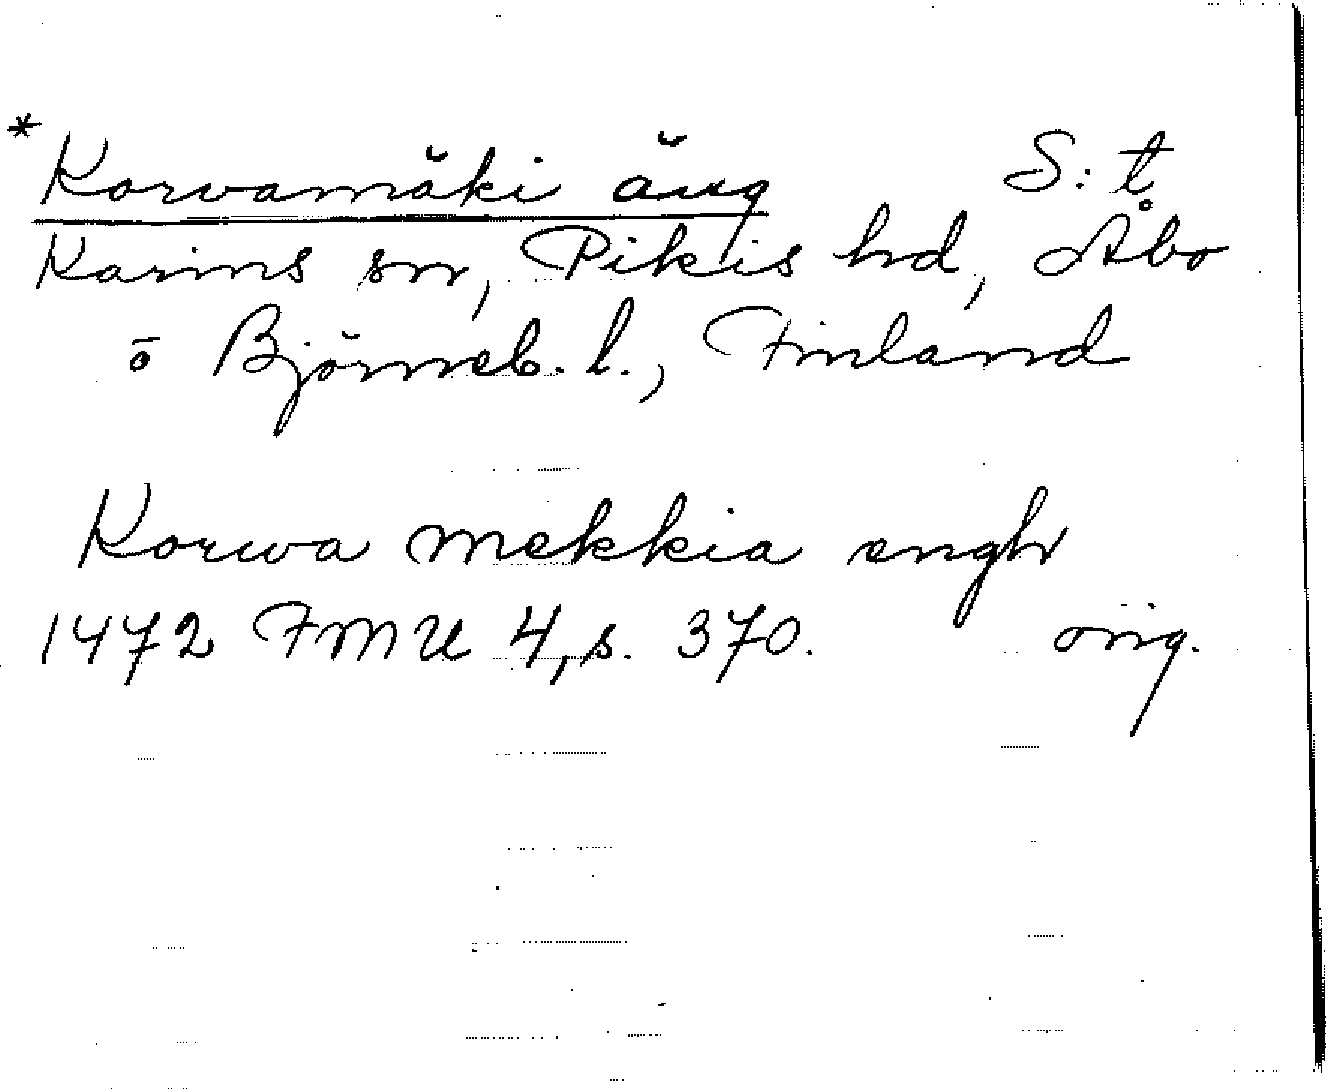 * Korvamäki äng S:t
Karins sn, Pikis hd, Åbo
o Björneb. l., Finland
Korwa mekkia engh
1472 FMU 4, s. 370. orig.